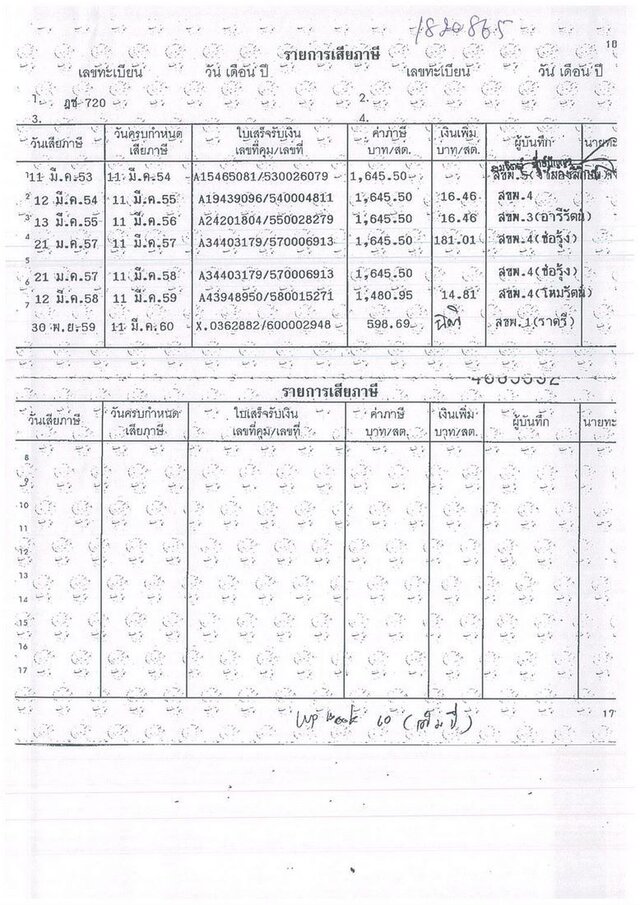 1820865
18
รายการเสียภาษี
เลขทะเบียน วัน เดือน ปี เลขทะเบียน วัน เดือน ปี
1. ฎช 720 2.
3. 4.
วันเสียภาษี วันครบกำหนดเสียภาษี ใบเสร็จรับเงิน เลขที่คุม/เลขที่ ค่าภาษี บาท/สต. เงินเพิ่ม บาท/สต. ผู้บันทึก นายทะ
1 11 มี.ค.53 11 มี.ค.54 A15465081/530026079 1,645.50 สขพ.5
2 12 มี.ค.54 11 มี.ค.55 A19439096/540004811 1,645.50 16.46 สขพ.4
3 13 มี.ค.55 11 มี.ค.56 A24201804/550028279 1,645.50 16.46 สขพ.3(อารีรัตน์)
4 21 ม.ค.57 11 มี.ค.57 A34403179/570006913 1,645.50 181.01 สขพ.4(ช่อรุ้ง)
5
6 21 ม.ค.57 11 มี.ค.58 A34403179/570006913 1,645.50 สขพ.4(ช่อรุ้ง)
7 12 มี.ค.58 11 มี.ค.59 A43948950/580015271 1,480.95 14.81 สขพ.4(โหมรัตน์)
30 พ.ย.59 11 มี.ค.60 X.0362882/600002948 598.69 สขพ.1(ราตรี)
รายการเสียภาษี
วันเสียภาษี วันครบกำหนดเสียภาษี ใบเสร็จรับเงิน เลขที่คุม/เลขที่ ค่าภาษี บาท/สต. เงินเพิ่ม บาท/สต. ผู้บันทึก นายทะ
8
9
10
11
12
13
14
15
16
17
Book 60 (
17